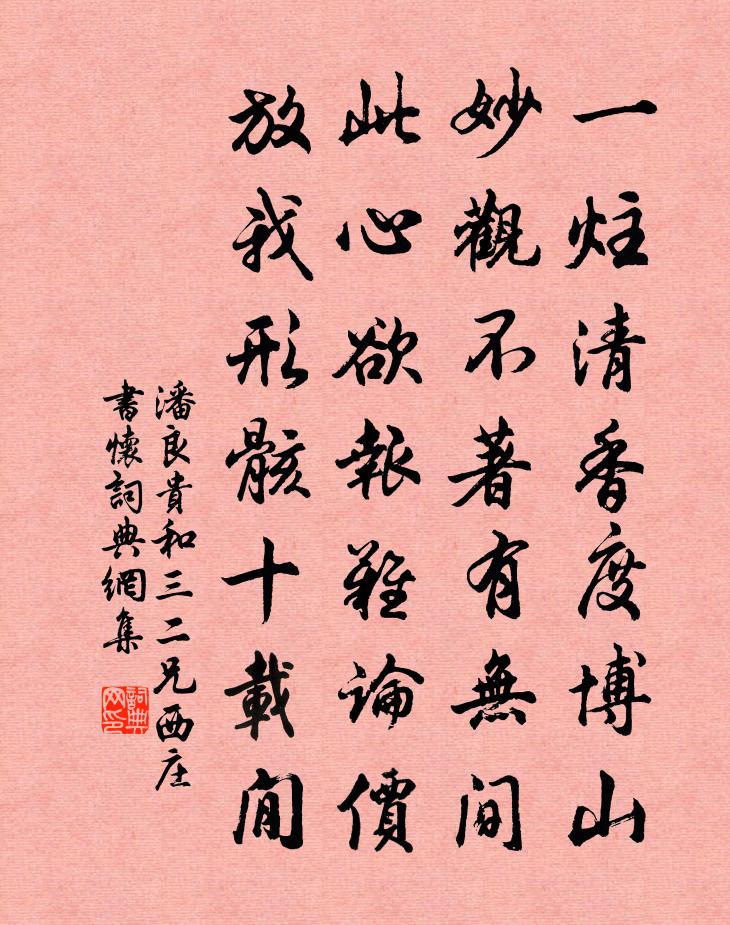 一炷清香度博山
妙觀不著有無間
此心欲報難論價
放我形骸十載閒
潘良貴和三二兄西庄
書懷詞典網集
詞典网印